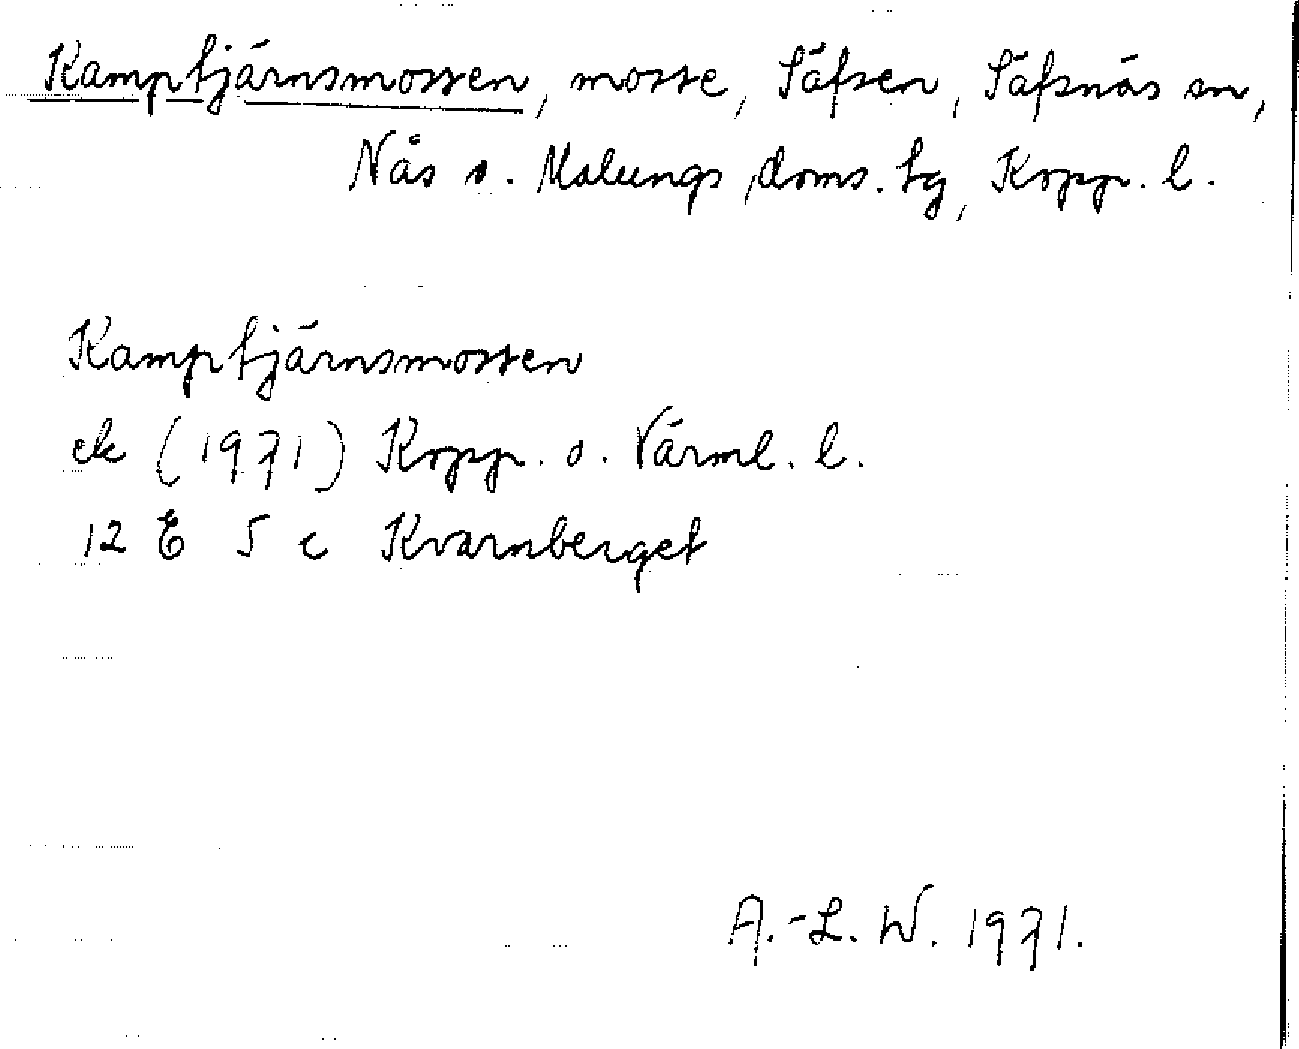 Kamptjärnsmossen, mosse, Säfsen, Säfsnäs sn,
Nås o. Malungs doms. tg, Kopp. l.
Kamptjärnsmossen
ek (1971) Kopp. o. Värml. l.
12 E 5 c Kvarnberget
A.-L. W. 1971.